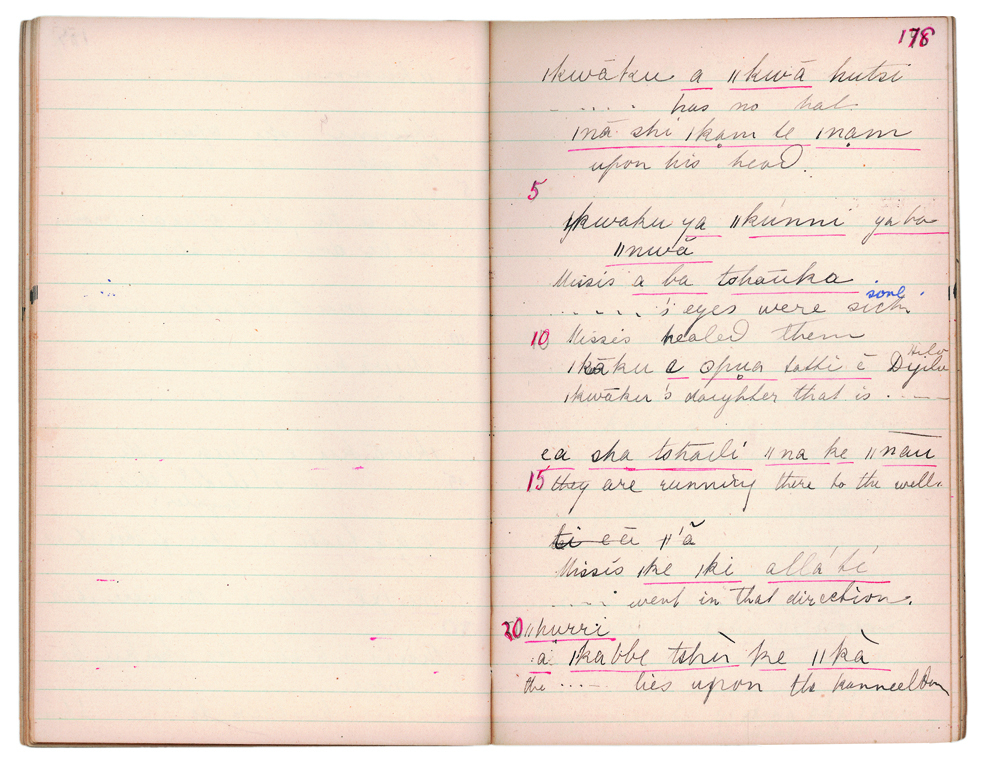 178
ǀkwāku a ǁkwā hutsi
- .... has no hat.
ǀnā shi ǀkạm te ǀnạm
upon his head.
5
ǀkwaku ya ǁkúnni yaba
ǁnwā
Missis a ba tshāuka
- ..... 's eyes were sick sore.
10 Missis healed them
ǀkāku a ọpua tatti è Dyilu
ǀkwāku's daughter that is . .—
ea sha tshaili ǁna ke ǁnāu
15 they are running there to the well.
ti eā ǁ'ã
Missis ǀke ǀki allá tí
- .... went in that direction.
20 ǁhurri
a ǀkabbe tshùi ke ǁkà
the ... — lies upon the